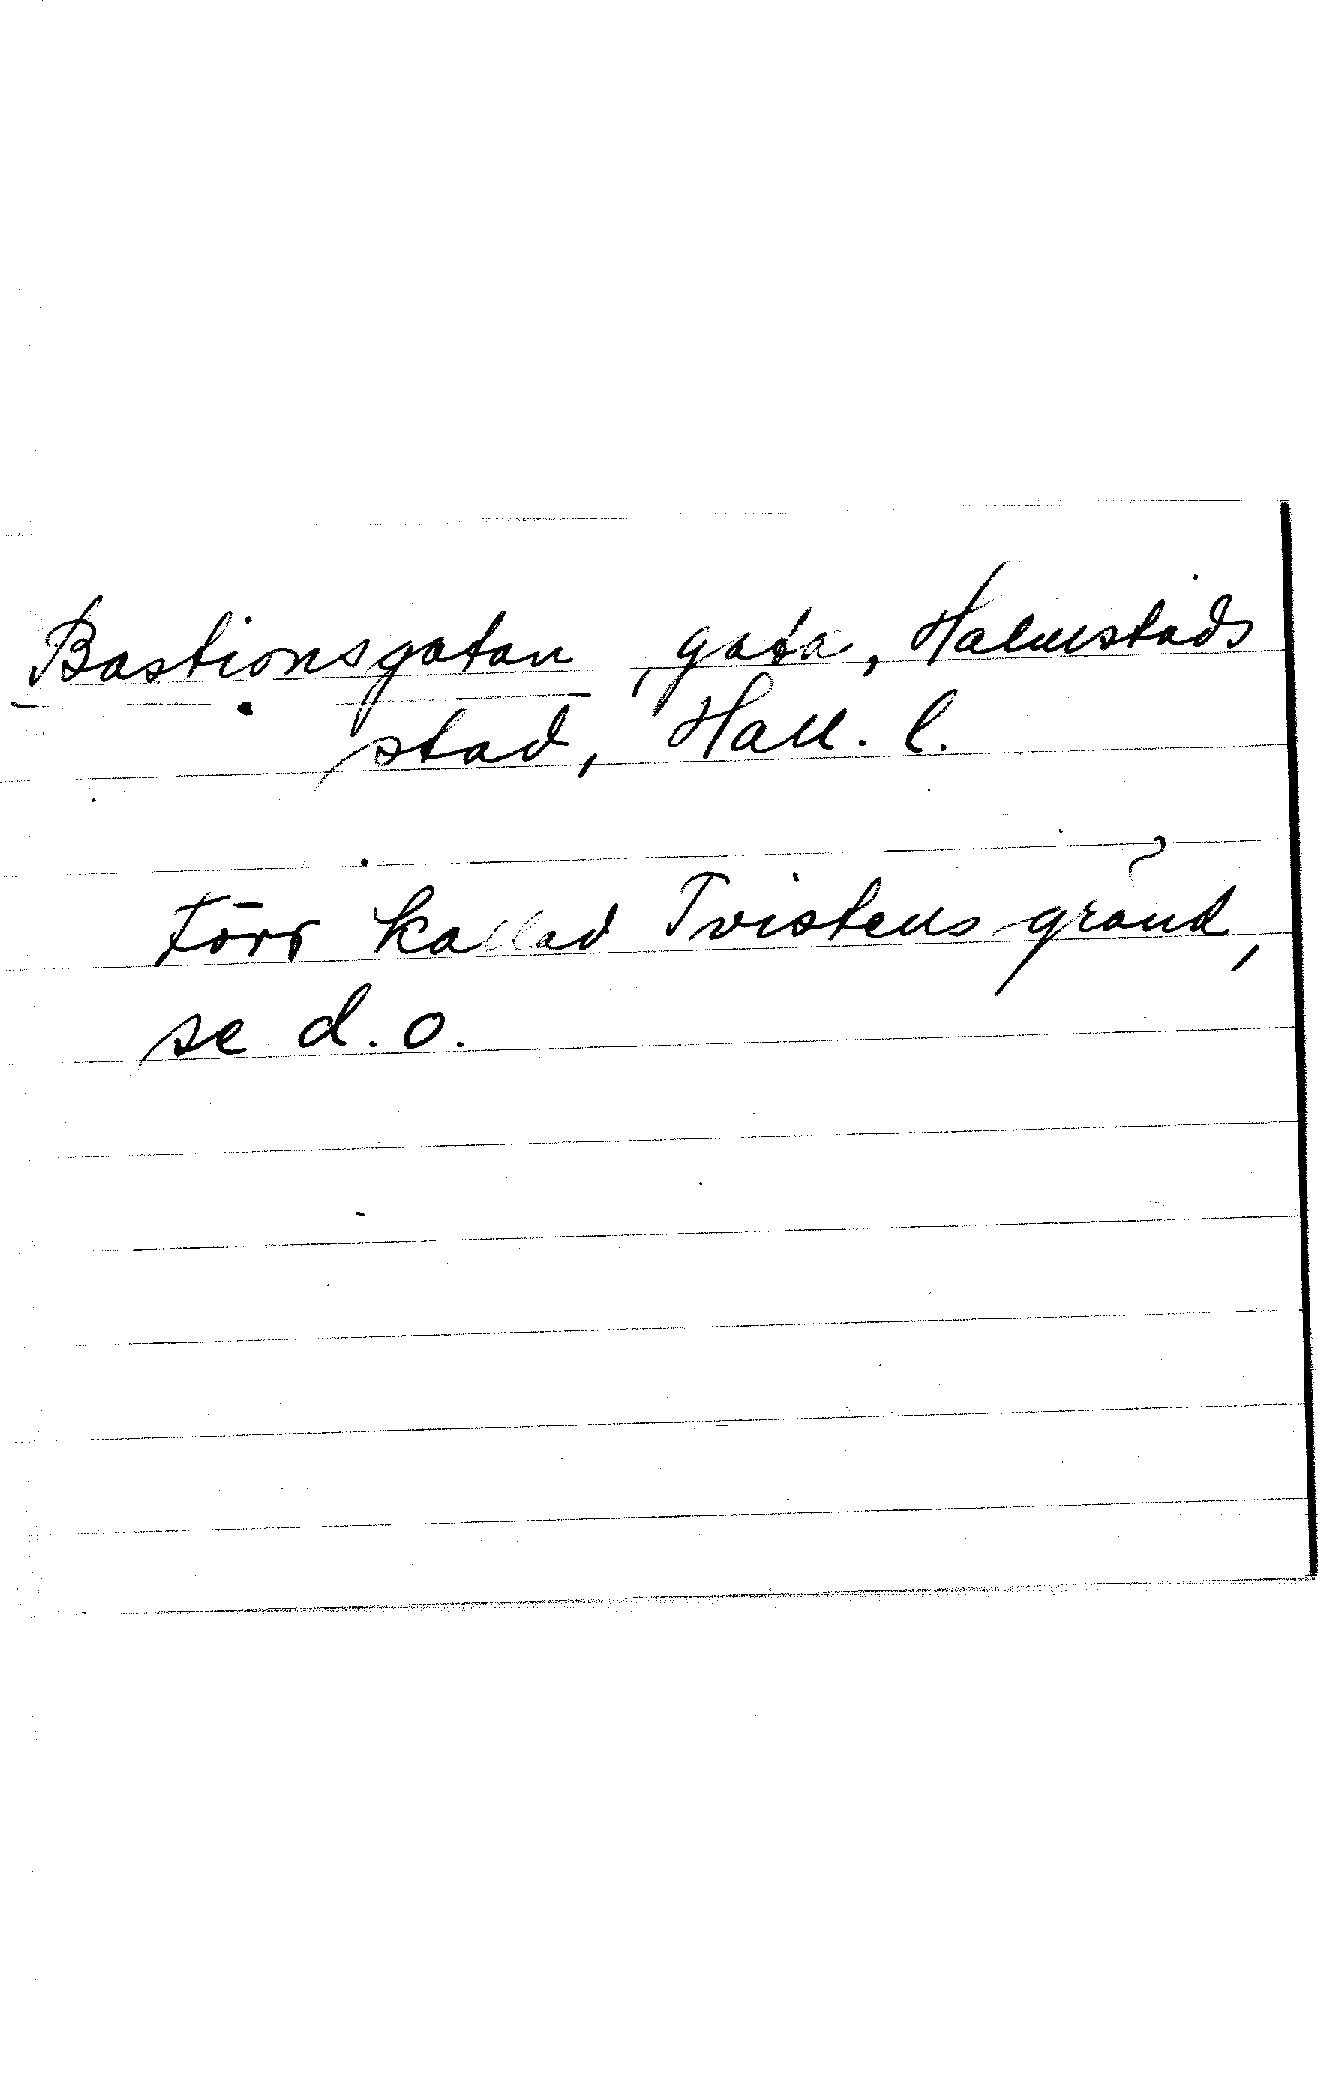 Bastionsgatan, gata, Halmstads
stad, Hall. l.
Förr kallad Tvistens gränd,
se d.o.